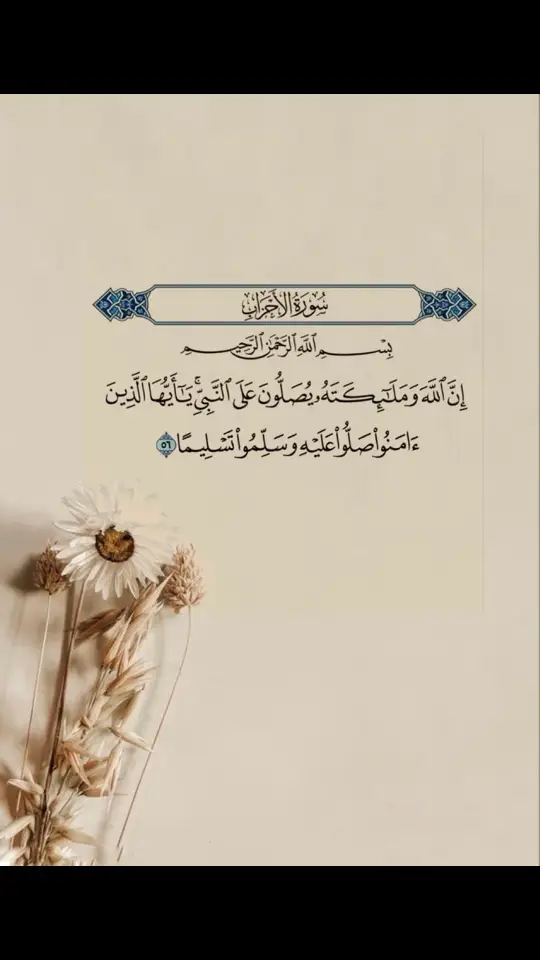 سُورَةُ الأَحْزَابِ
بِسْمِ ٱللَّهِ ٱلرَّحْمَٰنِ ٱلرَّحِيمِ
إِنَّ ٱللَّهَ وَمَلَٰٓئِكَتَهُۥ يُصَلُّونَ عَلَى ٱلنَّبِيِّۚ يَٰٓأَيُّهَا ٱلَّذِينَ
ءَامَنُوا۟ صَلُّوا۟ عَلَيْهِ وَسَلِّمُوا۟ تَسْلِيمًا ٥٦